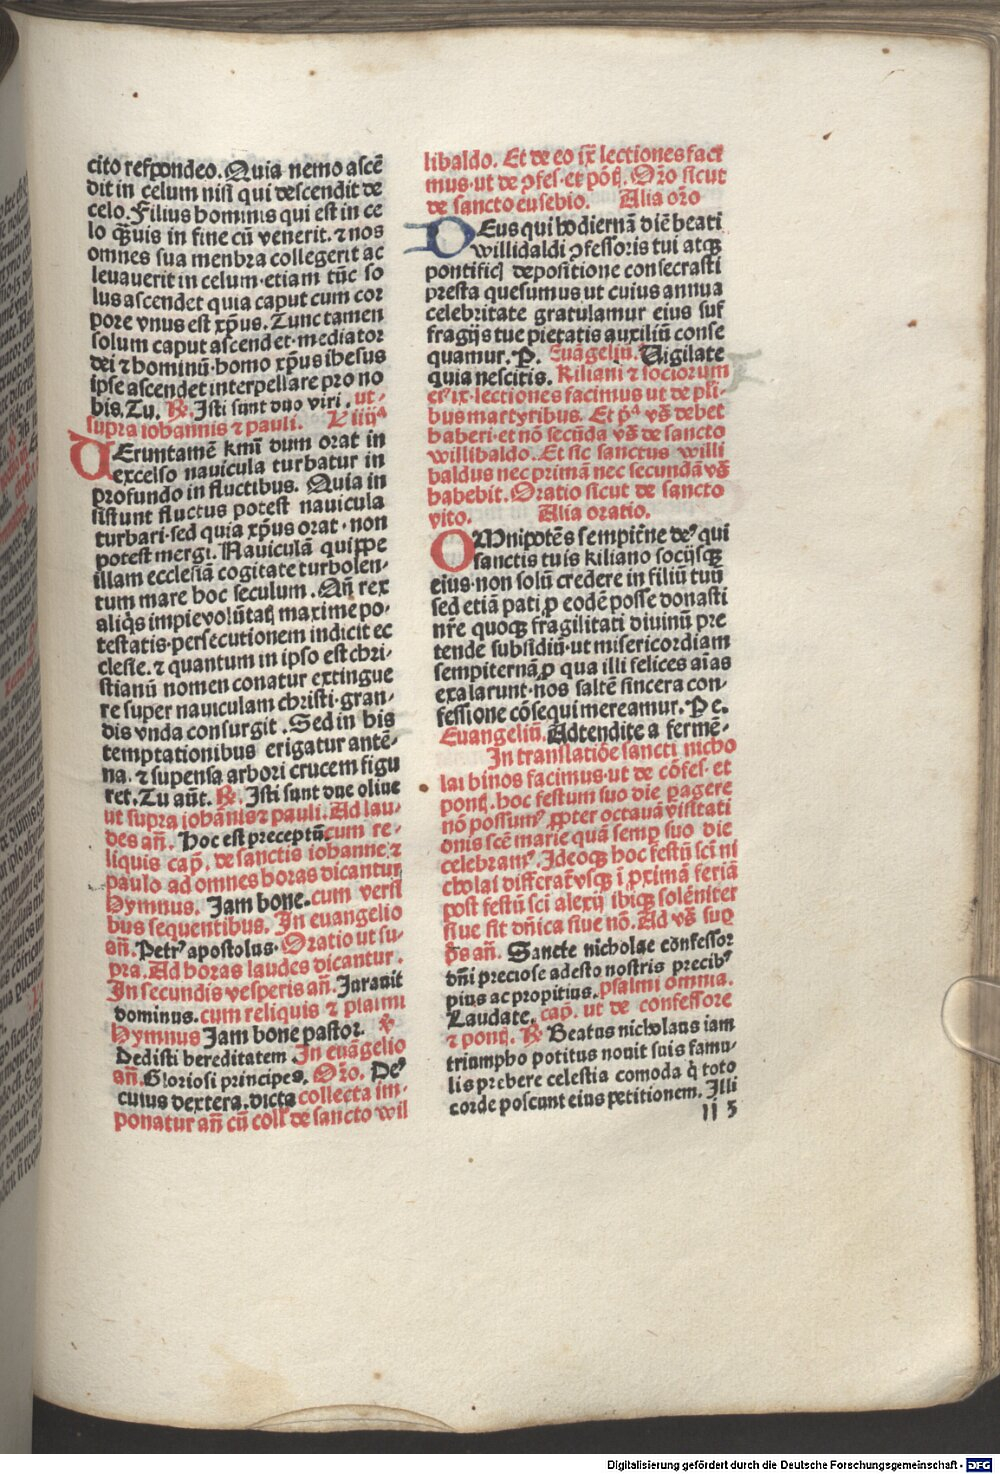 cito respondeo. Quia nemo ascē
dit in celum nisi qui descendit de
celo. Filius hominis qui est in ce
lo Quis in fine cū venerit. ⁊ nos
omnes sua menbra collegerit ac
leuauerit in celum· etiam tūc so
lus ascendet quia caput cum cor
pore vnus est xp̄us. Tunc tamen
solum caput ascendet· mediator
dei ⁊ hominū· homo xp̄us ihesus
ipse ascendet interpellare pro no
bis. Tu. ℟. Isti sunt duo viri. ut·
supra iohannis ⁊ pauli.
UEruntamē kmī dum orat in
excelso nauicula turbatur in
profundo in fluctibus. Quia in
sistunt fluctus potest nauicula
turbari· sed quia xp̄us orat· non
potest mergi. Nauiculā quippe
illam ecclesiā cogitate turbolen-
tum mare hoc seculum. Qn̄ rex
aliq̄s impie volūtatꝭ maxime po-
testatis· persecutionem indicit ec
clesie. ⁊ quantum in ipso est chri-
stianū nomen conatur extingue
re super nauiculam christi· gran-
dis vnda consurgit. Sed in his
temptationibus erigatur antē-
na. ⁊ supensa arbori crucem figu
ret. Tu aūt. ℟. Isti sunt due oliue
ut supra iohānis ⁊ pauli. Ad lau-
des an̄. Hoc est preceptū. cum re-
liquis cap̄. de sanctis iohanne ⁊
paulo ad omnes horas dicantur
Hymnus. Jam bone. cum versi
bus sequentibus. In euangelio
an̄. Petrꝰ apostolus· Oratio ut su-
pra. Ad horas laudes dicantur.
In secundis vesperis an̄. Jurauit
dominus. cum reliquis ⁊ psalmi
Hymnus Jam bone pastor. ℣
Dedisti hereditatem In euāgelio
an̄. Gloriosi principes. Oro̅. Deꝰ
cuius dextera. dicta collecta im-
ponatur an̄ cū coll̄ de sancto wil
libaldo. Et de eo ix lectiones faci
mus· ut de ꝯfes· et pōtꝭ. Oro̅ sicut
de sancto eusebio. Alia oro̅
DEus qui hodiernā diē beati
willidaldi ꝯfessoris tui atqꝫ
pontificꝭ depositione consecrasti
presta quesumus ut cuius annua
celebritate gratulamur eius suf
fragijs tue pietatis auxiliū conse
quamur. P. Euāgeliū. Vigilate
quia nescitis. Kiliani ⁊ sociorum
eiꝰ ix· lectiones facimus ut de pli-
bus martyribus. Et pᵃ vs̄ debet
haberi· et nō secūda vs̄ de sancto
willibaldo. Et sic sanctus willi
baldus nec primā nec secundā vs̄
habebit. Oratio sicut de sancto
vito. Alia oratio.
OMnipotēs sempiṫne deꝰ qui
sanctis tuis kiliano socijsqꝫ
eius· non solū credere in filiū tuū
sed etiā pati ꝑ eodē posse donasti
nr̄e quoqꝫ fragilitati diuinū pre
tende subsidiū· ut misericordiam
sempiternā ꝑ qua illi felices aīas
exalarunt· nos saltē sincera con-
fessione cōsequi mereamur. P e.
Euangeliū. Adtendite a fermē-
In translatiōe sancti nicho
lai binos facimus· ut de cōfes· et
pontꝭ. hoc festum suo die pagere
nō possumꝰ ꝓpter octauā visitati
onis scē marie quā semꝑ suo die
celebramꝰ. Ideoqꝫ hoc festū scī ni
cholai differat̄ vsqꝫ ī ꝓximā feriā
post festū scī alexij ibiqꝫ solēniter
siue sit dn̄ica siue nō. Ad vs̄ sup
p̄s an̄. Sancte nicholae cōnfessor
dn̄i preciose adesto nostris precibꝰ
pius ac propitius. psalmi omnia.
Laudate. cap̄. ut de confessore
⁊ pontꝭ. ℟ Beatus nicholaus iam
triumpho potitus nouit suis famu-
lis prebere celestia comoda q̇ toto
corde poscunt eius petitionem. Illi
ll 5
Digitalisierung gefördert durch die Deutsche Forschungsgemeinschaft - DFG